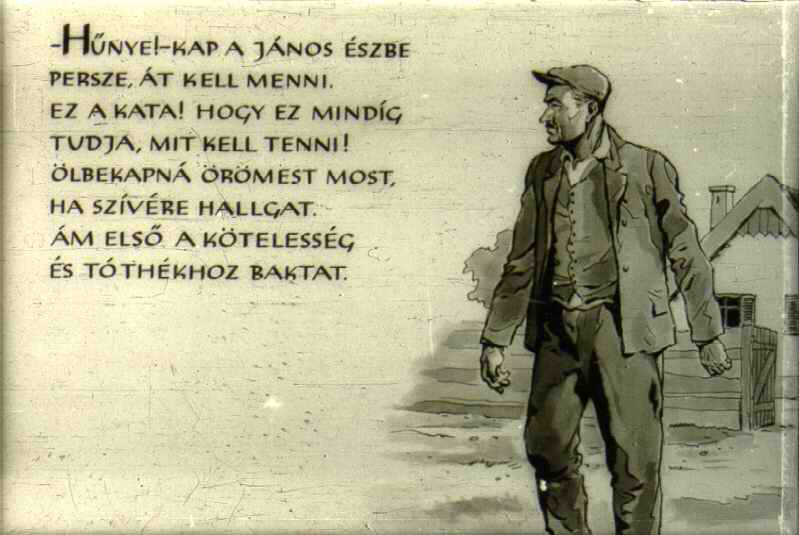 -HŰNYE!-KAP A JÁNOS ÉSZBE
PERSZE, ÁT KELL MENNI.
EZ A KATA! HOGY EZ MINDÍG
TUDJA, MIT KELL TENNI!
ÖLBEKAPNÁ ÖRÖMEST MOST,
HA SZÍVÉRE HALLGAT.
ÁM ELSŐ A KÖTELESSÉG
ÉS TÓTHÉKHOZ BAKTAT.